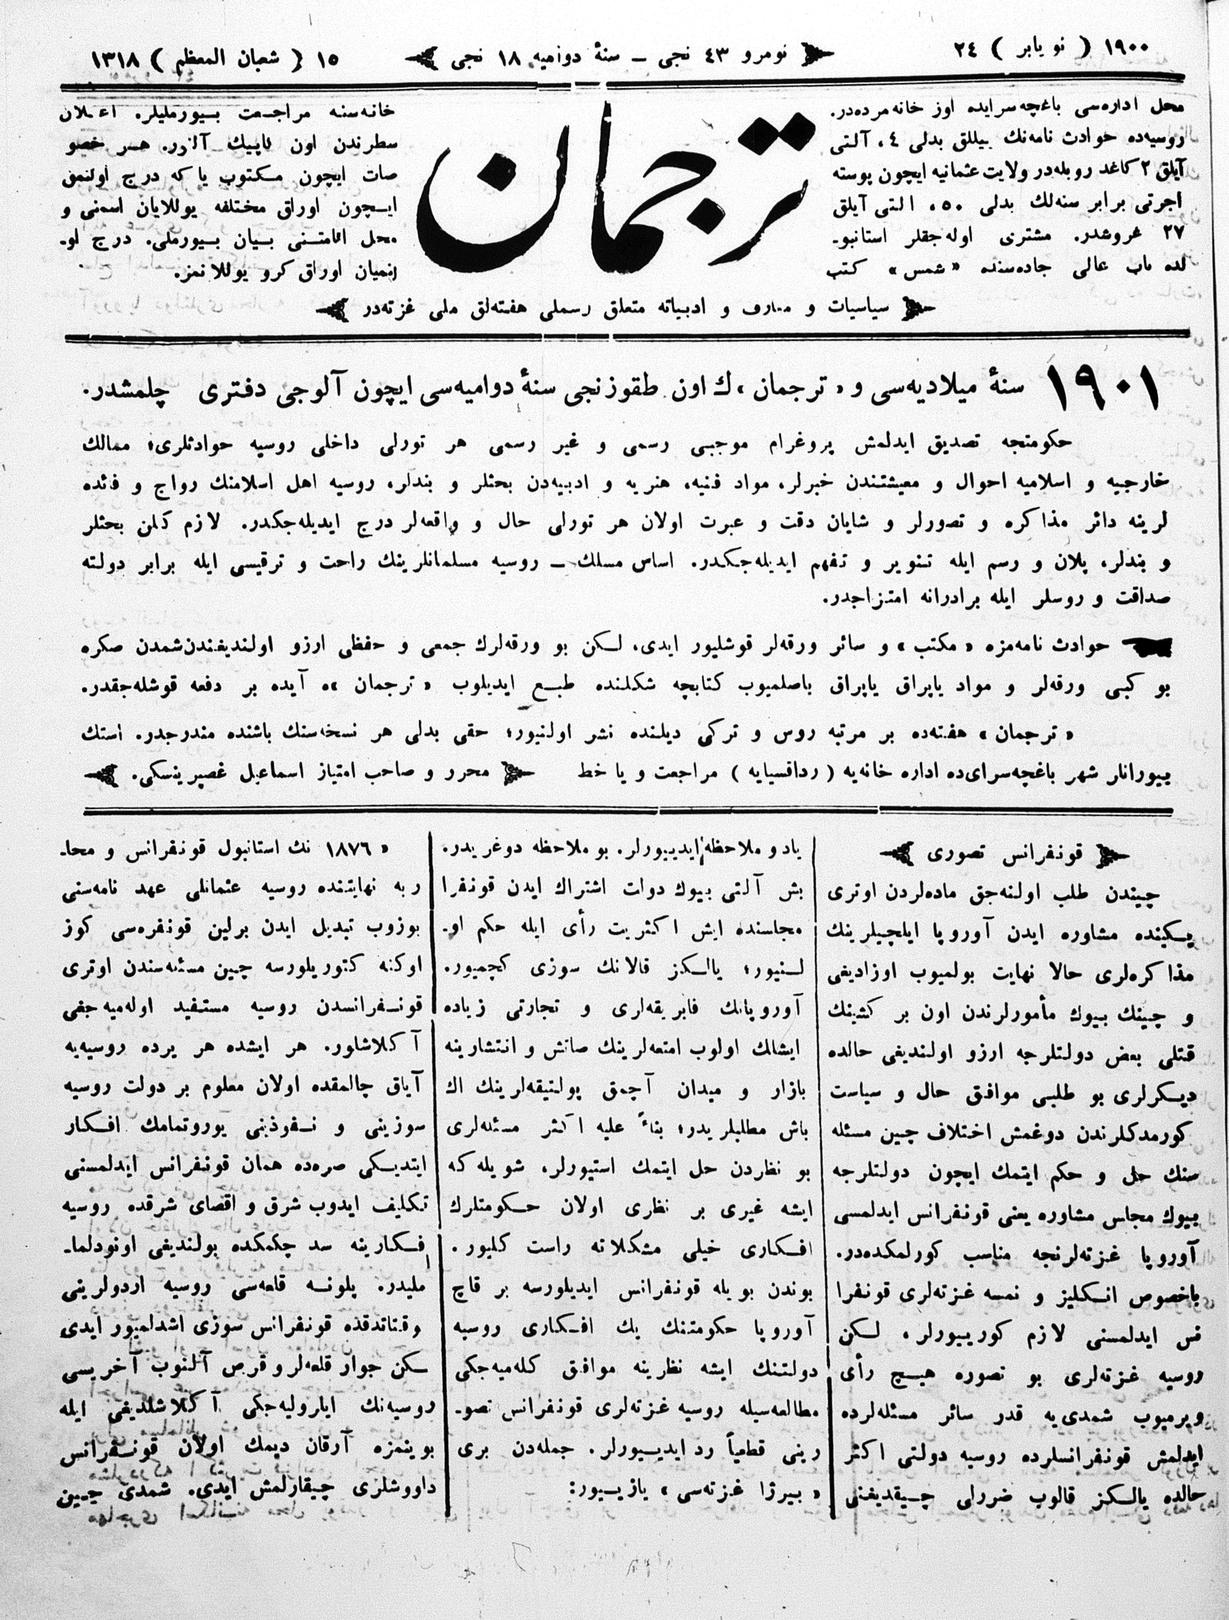 ١٩٠٠ ( نويابر ) ٢٤
نومرو ٤٣ نجی — سنۀ دوامیه ١٨ نجی
١٥ ( شعبان المعظم ) ١٣١٨
محل اداره‌سی باغچه‌سرایده اوز خانه‌مزده‌در.
روسیه‌ده حوادث نامه‌نك ییللق بدلی ٤، آلتی
آیلق ٢ كاغد روبله‌در ولایت عثمانیه ایچون پوسته
اجرتی برابر سنه‌لك بدلی ٥٠، التی آیلق
٢٧ غروشدر. مشتری اوله‌جقلر استانبو-
لده باب عالی جاده‌سنده «شمس» كتب
ترجمان
خانه‌سنه مراجعت بیورملیلر. اعلان
سطرندن اون قاپیك آلنور. هر خصو
صات ایچون مكتوب یا كه درج اولنمق
ایچون اوراق مختلفه یوللایان اسمنی و
محل اقامتنی بیان بیورملی. درج او-
لنمیان اوراق كرو یوللانمز.
سیاسیات و معارف و ادبیاته متعلق رسملی هفته‌لق ملی غزته‌در
١٩٠١ سنۀ میلادیه‌سی و «ترجمان»ك اون طقوزنجی سنۀ دوامیه‌سی ایچون آلوجی دفتری چلمشدر.
حكومتجه تصدیق ایدلمش پروغرام موجبی رسمی و غیر رسمی هر تورلی داخلی روسیه حوادثلری؛ ممالك
خارجیه و اسلامیه احوال و معیشتندن خبرلر، مواد فنیه، هنریه و ادبیه‌دن بحثلر و بندلر، روسیه اهل اسلامنك رواج و فائده
لرینه دائر مذاكره و تصورلر و شایان دقت و عبرت اولان هر تورلی حال و واقعه‌لر درج ایدیله‌جكدر. لازم كلن بحثلر
و بندلر، پلان و رسم ایله تنویر و تفهم ایدیله‌جكدر. اساس مسلك — روسیه مسلمانلرینك راحت و ترقیسی ایله برابر دولته
صداقت و روسلر ایله برادرانه امتزاجدر.
حوادث نامه‌مزه «مكتب» و سائر ورقه‌لر قوشلیور ایدی، لكن بو ورقه‌لرك جمعی و حفظی ارزو اولندیغندن شمدن صكره
بو كبی ورقه‌لر و مواد یاپراق یاپراق باصلمیوب كتابچه شكلنده طبع ایدیلوب «ترجمان»ه آیده بر دفعه قوشله‌جقدر.
«ترجمان» هفته‌ده بر مرتبه روس و تركی دیلنده نشر اولنیور؛ حقی بدلی هر نسخه‌سنك باشنده مندرجدر. استك
بیورانلر شهر باغچه‌سرای‌ده اداره خانه‌یه (رداقسیایه) مراجعت و یا خط محرر و صاحب امتیاز اسماعیل غصپرینسكی.
قونفرانس تصوری
چیندن طلب اولنه‌جق ماده‌لردن اوتری
پكینده مشاوره ایدن آوروپا ایلچیلرینك
مذاكره‌لری حالا نهایت بولمیوب اوزادیغی
و چینك بیوك مأمورلرندن اون بر كشینك
قتلی بعض دولتلرجه ارزو اولندیغی حالده
دیكرلری بو طلبی موافق حال و سیاست
كورمدكلرندن دوغمش اختلاف چین مسئله
سنك حل و حكم ایتمك ایچون دولتلرجه
بیوك مجلس مشاوره یعنی قونفرانس ایدلمسی
آوروپا غزته‌لرنجه مناسب كورلمكده‌در.
باخصوص انكلیز و نمسه غزته‌لری قونفرا
نس ایدلمسنی لازم كوریبورلر، لكن
روسیه غزته‌لری بو تصوره هیچ رأی
ویرمیوب شمدی‌یه قدر سائر مسئله‌لرده
ایدلمش قونفرانسلرده روسیه دولتی اكثر
حالده یالكز قالوب ضررلی چیقدیغنی
یاد و ملاحظه ایدیبورلر. بو ملاحظه دوغریدر.
بش آلتی بیوك دولت اشتراك ایدن قونفرا
مجلسنده ایش اكثریت رأی ایله حكم او-
لنیور؛ یالكز قالانك سوزی كچمیور.
آوروپانك فابریقه‌لری و تجارتی زیاده
ایشلك اولوب امتعه‌لرینك صاتش و انتشارینه
بازار و میدان آچمق پولتیقه‌لرینك اك
باش مطلبلریدر؛ بناءً علیه اكثر مسئله‌لری
بو نظردن حل ایتمك استیورلر، شویله كه
ایشه غیری بر نظری اولان حكومتلرك
افكاری خیلی مشكلاته راست كلیور.
بوندن بویله قونفرانس ایدیلورسه بر قاچ
آوروپا حكومتنك بك افكاری روسیه
دولتنك ایشه نظرینه موافق كله‌میه‌جكی
مطالعه‌سیله روسیه غزته‌لری قونفرانس تصو-
رینی قطعیاً رد ایدیبورلر. جمله‌دن بری
«بیرژا غزته‌سی» یازیبور:
«١٨٧٦ نك استانبول قونفرانس و محا-
ربه نهایتنده روسیه عثمانلی عهد نامه‌سنی
بوزوب تبدیل ایدن برلین قونفره‌سی كوز
اوكنه كتوریلورسه چین مسئله‌سندن اوتری
قونفرانسدن روسیه مستفید اوله‌میه‌جغی
آكلاشلور. هر ایشده هر یرده روسیه‌یه
آیاق چالمقده اولان معلوم بر دولت روسیه
سوزینی و نفوذینی یوروتمامك افكار
ایتدیكی صره‌ده همان قونفرانس ایدلمسنی
تكلیف ایدوب شرق و اقصای شرقده روسیه
افكارینه سد چكمكده بولندیغی اونودلما-
ملیدر. پلونه قلعه‌سی روسیه اردولرینی
وقتاتدقده قونفرانس سوزی اشدلمیور ایدی
لكن جوار قلعه‌لر و قرص آلنوب آخریسی
روسیه‌نك ایلرولیه‌جكی آكلاشلدیغی ایله
بوینمزه آرقان دیمك اولان قونفرانس
داووشلری چیقارلمش ایدی. شمدی چین